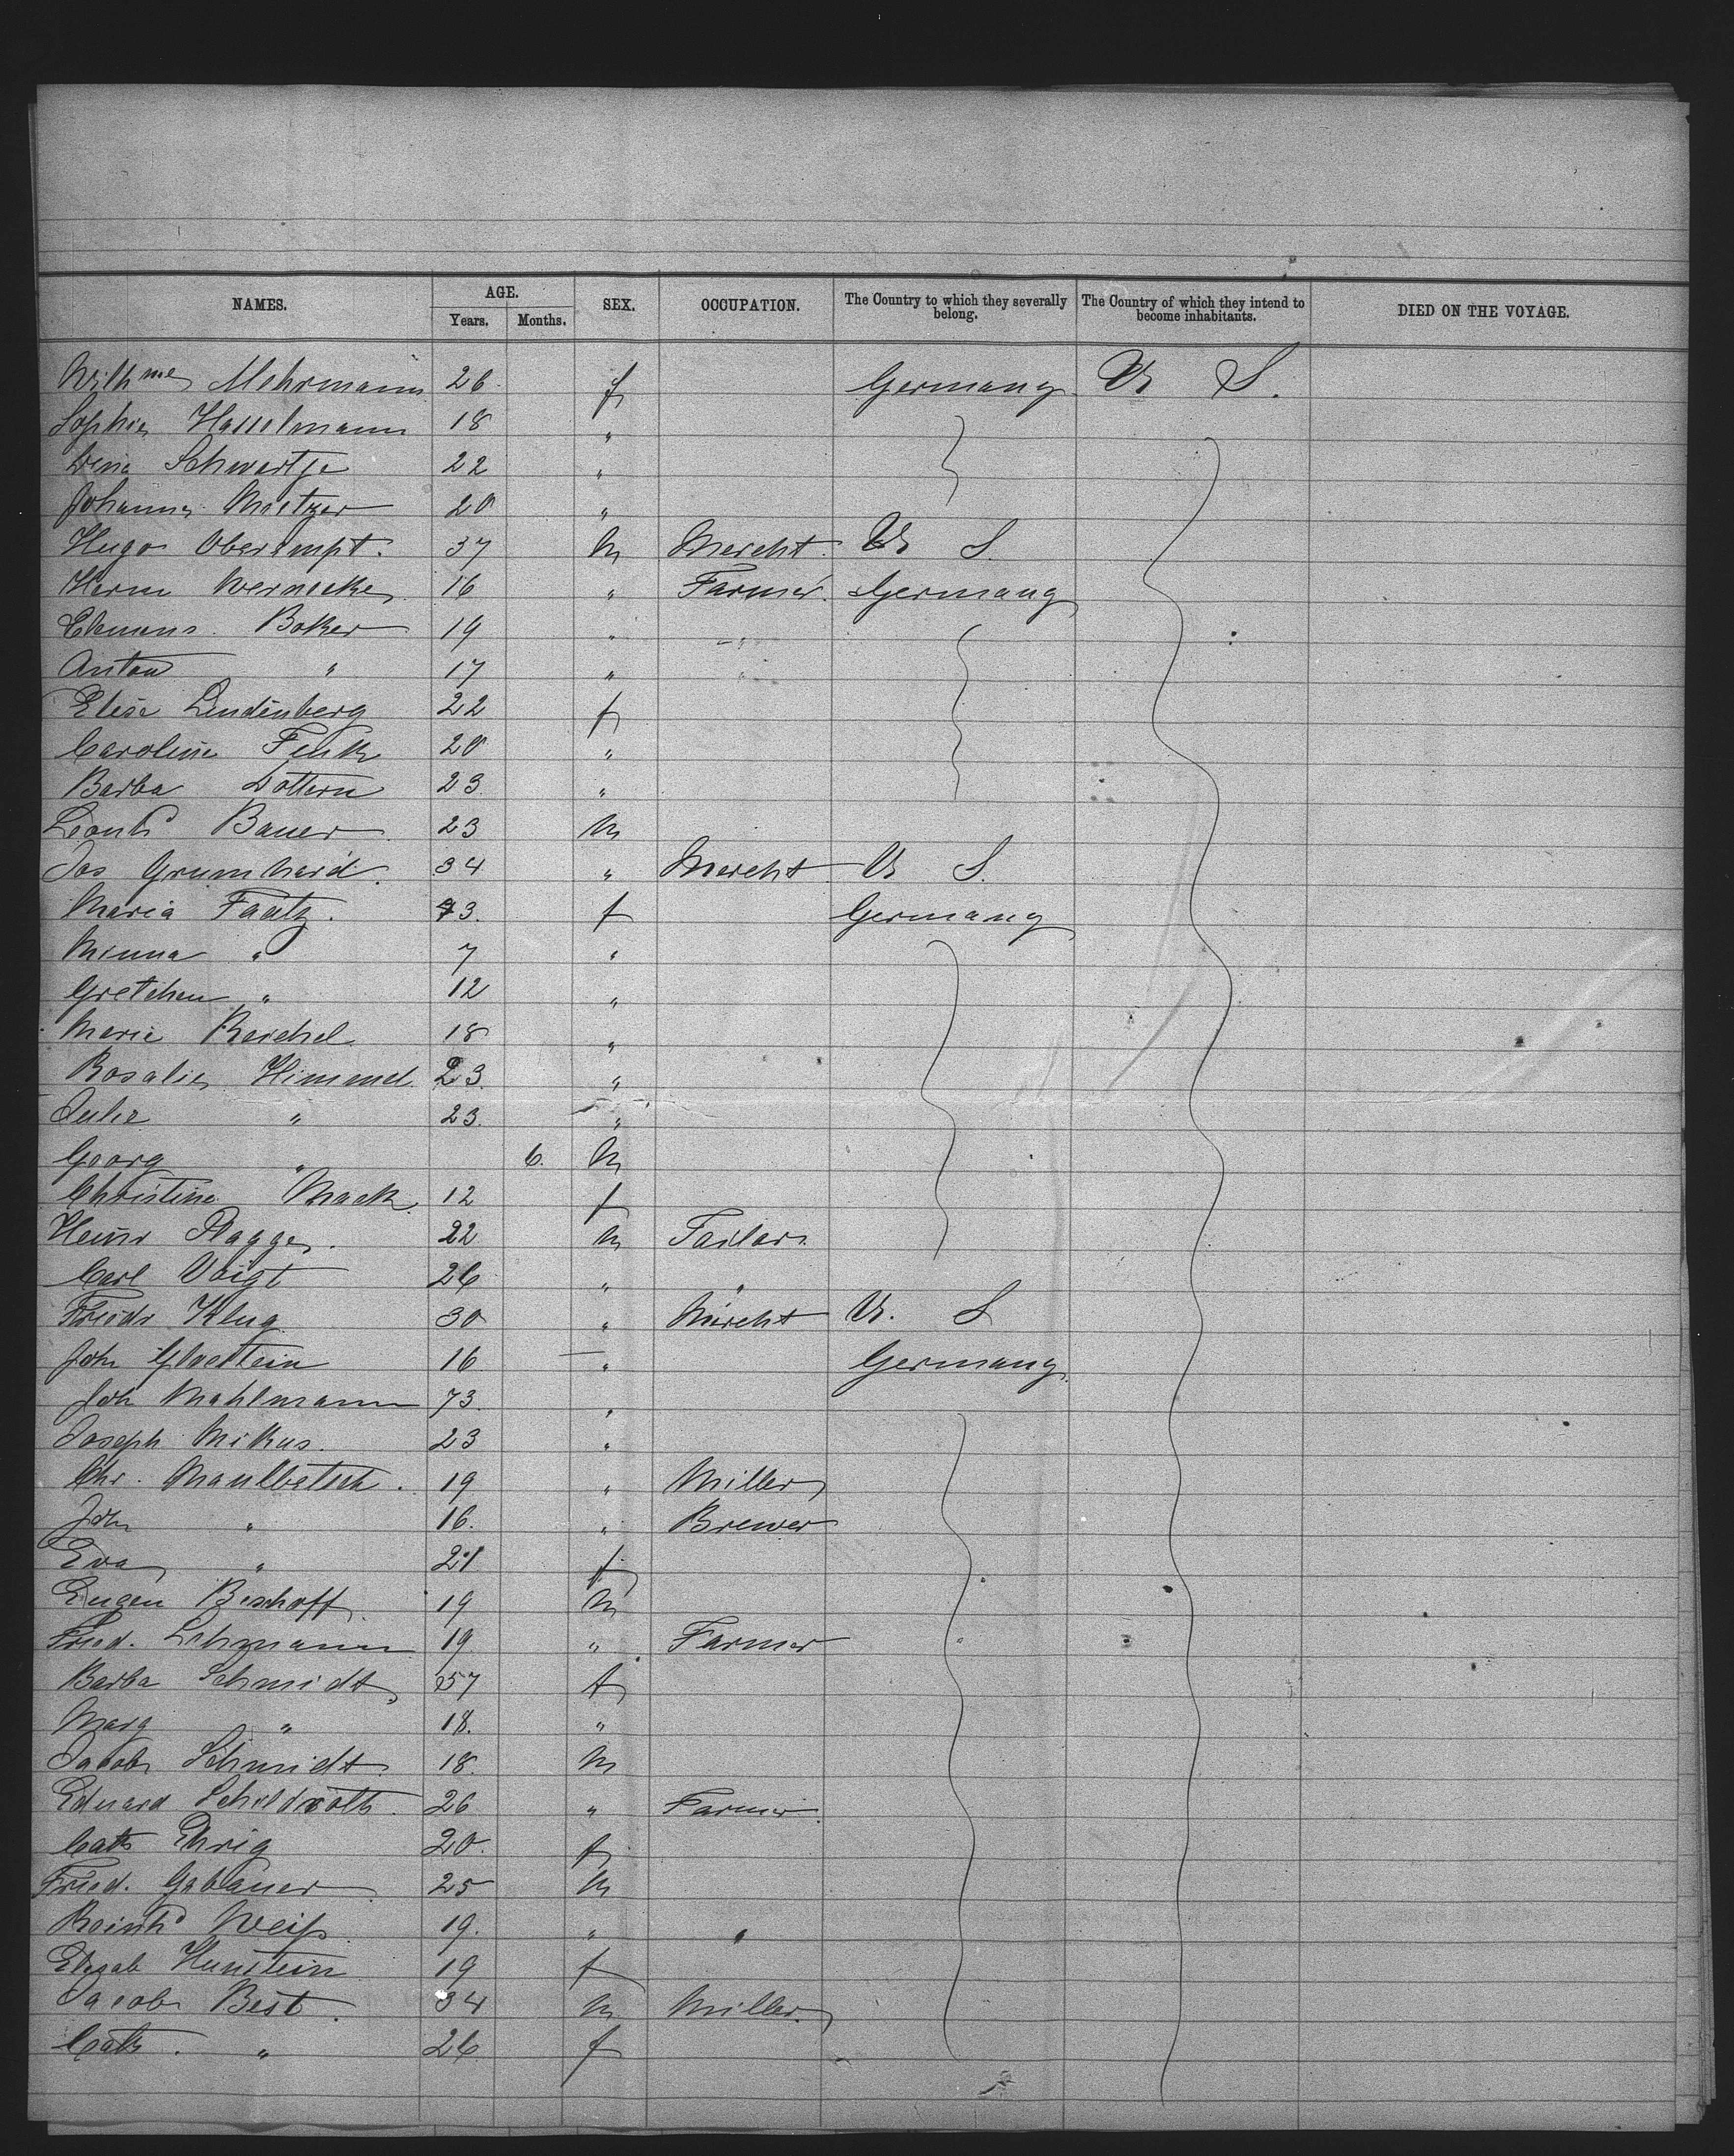 NAMES. AGE. SEX. OCCUPATION. The Country to which they severally belong. The Country of which they intend to become inhabitants. DIED ON THE VOYAGE.
Years. Months.
Wilhme Mehrmann 26 f Germany U S.
Sophie Hasselmann 18 "
Schwartje 22 "
Johanna Meitzer 20 "
Hugo Oberempt. 37 M Mercht. U S.
Herm Wernecke 16 " Farmer. Germany
Clemens Boker 19 " "
Anton " 17 " "
Elise Lindenberg 22 f
Caroline Fink 20 "
Barba Dottern 23 "
Leonhd Bauer 23 M
Jos Grumhard 34 " Mercht U S.
Maria Fautz. 43. f Germany
Minna " 7 "
Gretchen " 12 "
Marie Reichel 18 "
Rosalie Himmel 23. "
Julie " 23. "
Georg " 6. M
Christine Mack 12 f
Heinr Plagge. 22 M Tailor.
Carl Voigt 26 " "
Friedr Klug 30 " Mercht U. S
Joh 16 " Germany.
Joh Mahlmann 73. "
Joseph Mikus. 23 "
Chr. Maulbetsch. 19 " Miller
Joh " 16. " Brewer
Eva " 21 f
Eugen Bischoff 19 M
Fried. Lehmann 19 " Farmer
Barba Schmidt 57 f
Marg " 18. "
Jacob Schmidt 18. M
Eduard Schildroth. 26 " Farmer
Cath Ehrig 20. f
Fried. Gabauer 25 M
Reinhd Weiß 19. " "
Elisab Hunstein 19 f
Jacob Best. 34 M Miller.
Cath. " 26 f